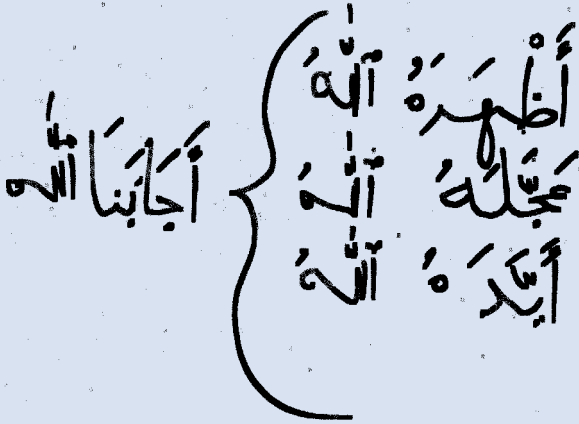 أَظْهَرَهُ ٱللَّهُ
عَجَّلَهُ ٱللَّهُ
أَيَّدَهُ ٱللَّهُ
أَجَابَنَا ٱللَّه